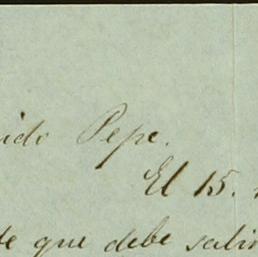 ido Pepe.
El 15.
te que debe salir